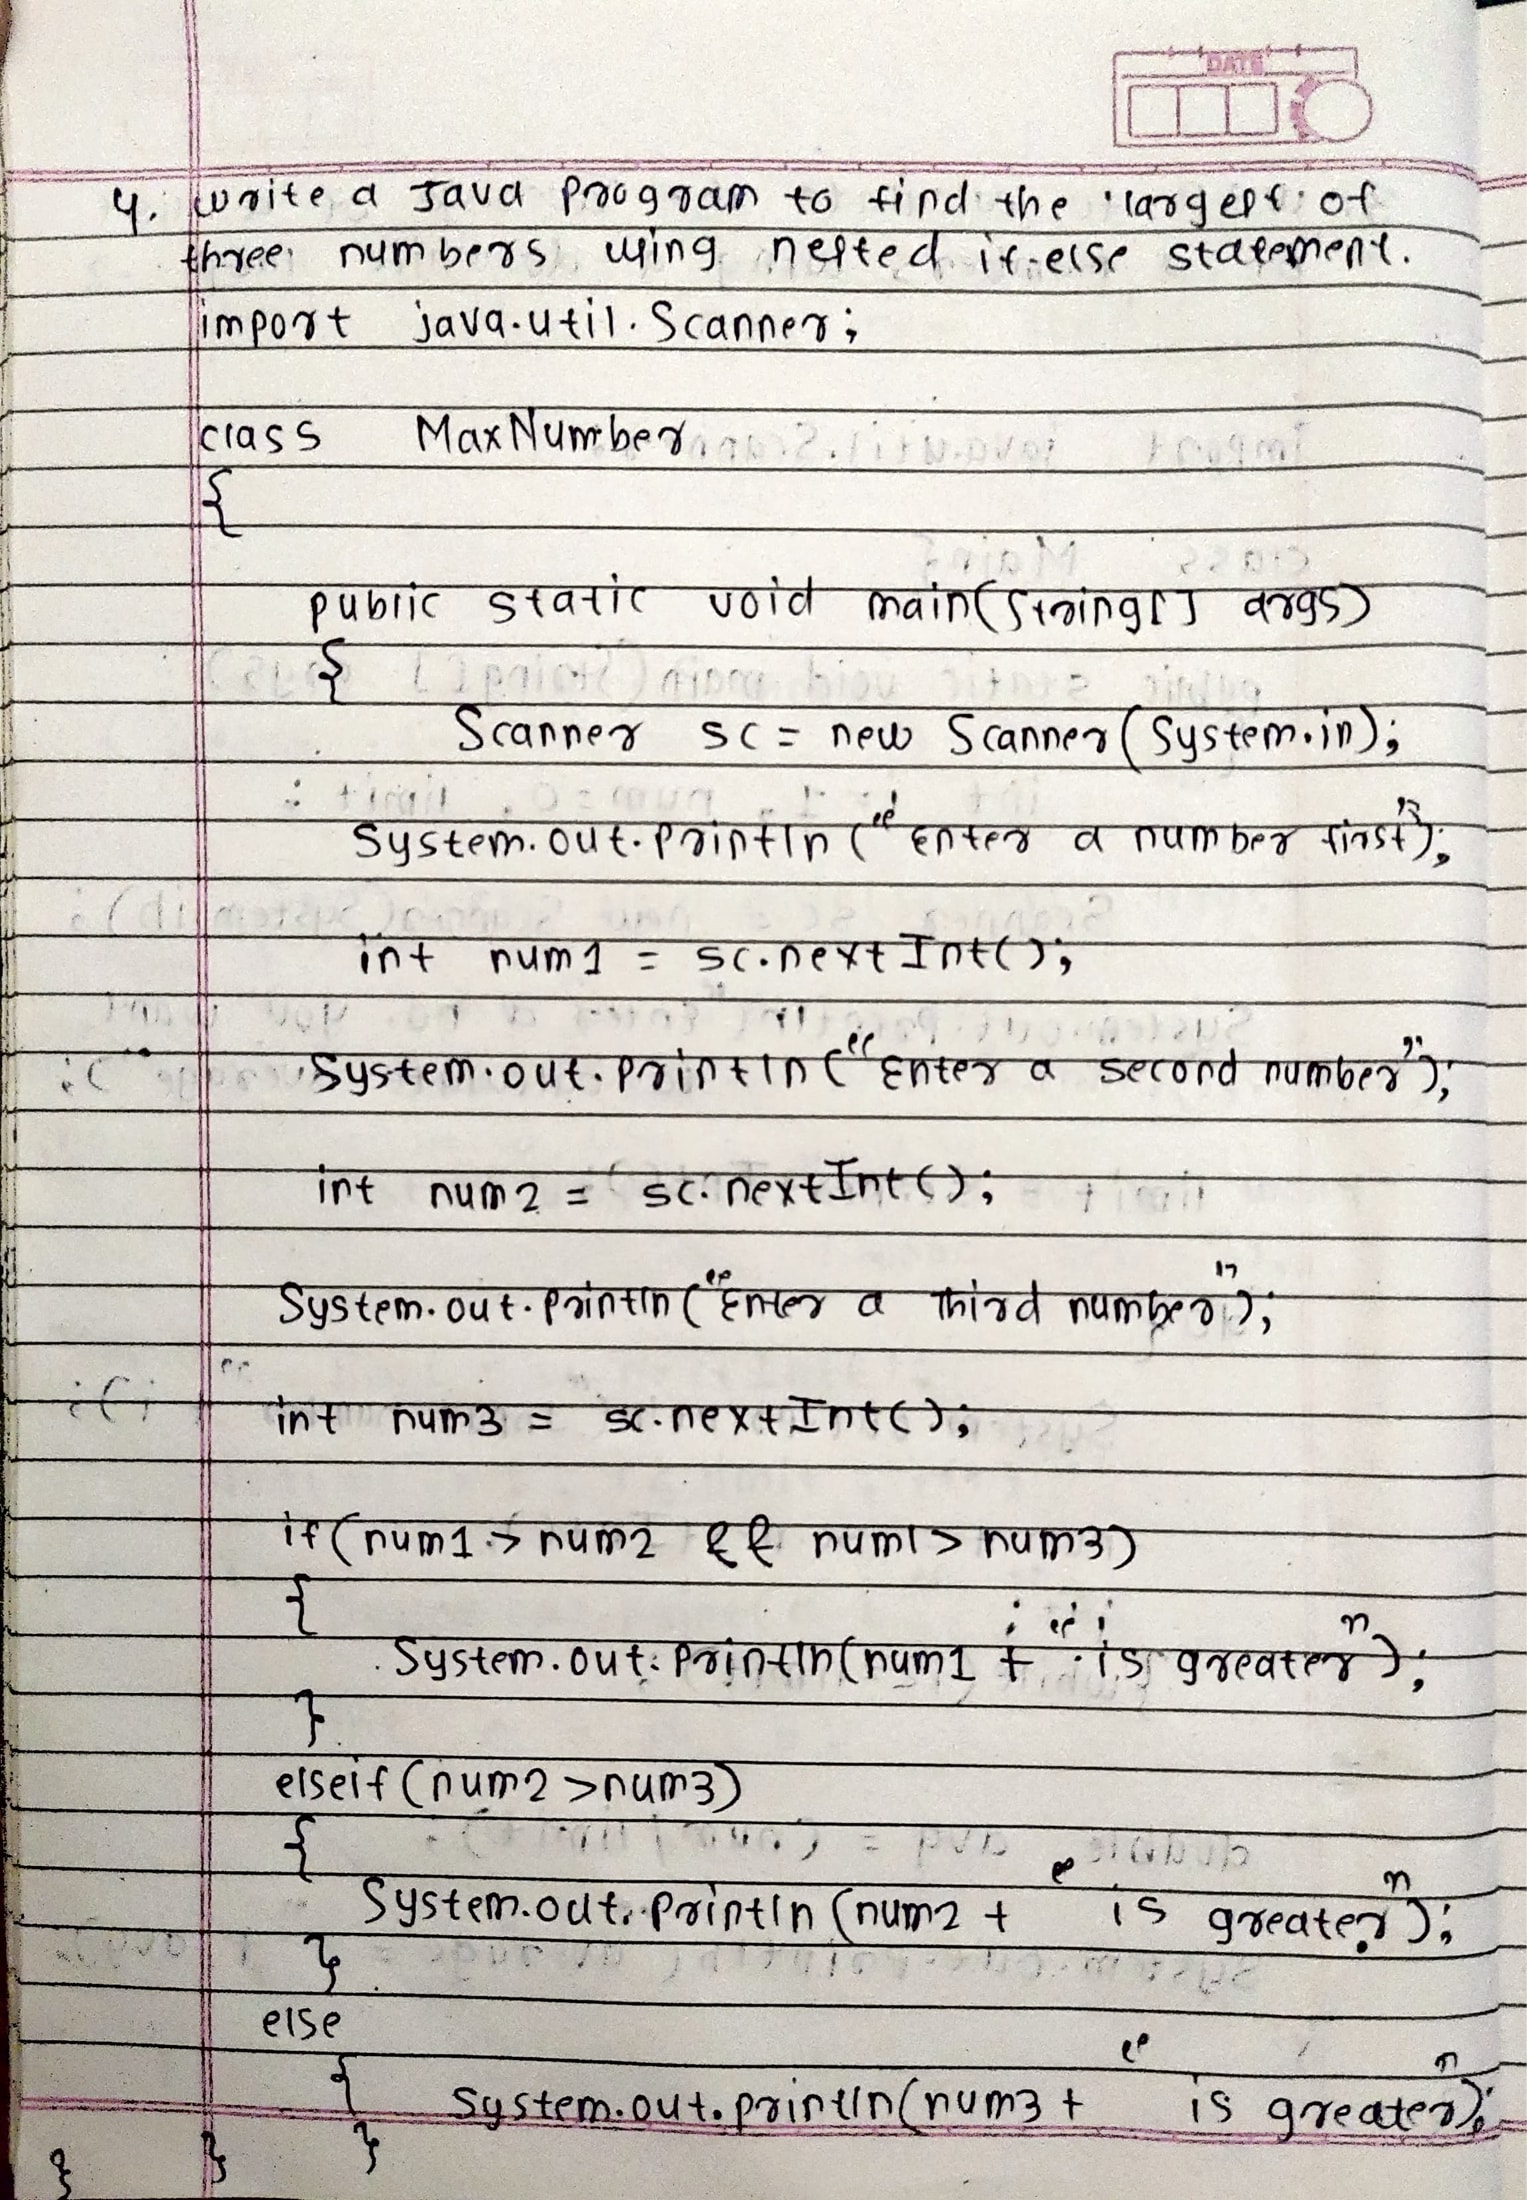 DATE
4. write a Java program to find the largest of
three numbers using nested if-else statement.
import java.util.Scanner;
class MaxNumber
{
public static void main(String[] args)
{
Scanner sc = new Scanner(System.in);
System.out.println("Enter a number first");
int num1 = sc.nextInt();
System.out.println("Enter a second number");
int num2 = sc.nextInt();
System.out.println("Enter a Third number");
int num3 = sc.nextInt();
if(num1 > num2 && num1 > num3)
{
System.out.println(num1 + " is greater");
}
elseif(num2 > num3)
{
System.out.println(num2 + " is greater");
}
else
{ System.out.println(num3 + " is greater");
} } }